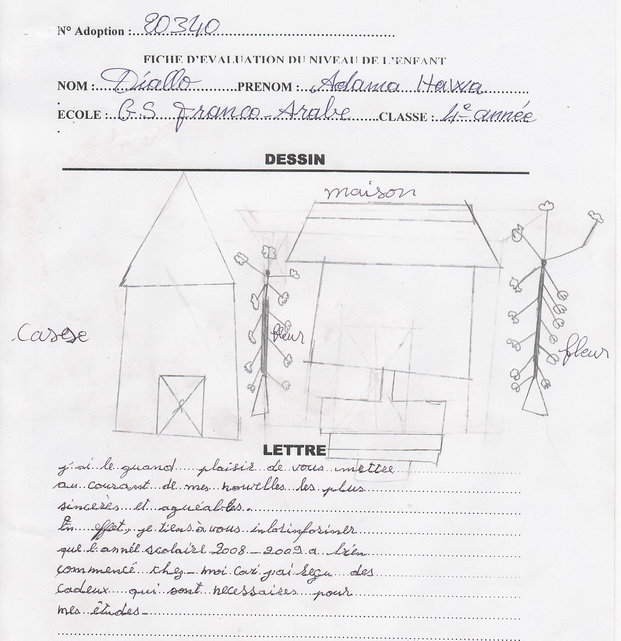 N° Adoption : 20340
FICHE D'EVALUATION DU NIVEAU DE L'ENFANT
NOM : Diallo PRENOM : Adama Hawa
ECOLE : G.S. Franco-Arabe CLASSE : 4e année
DESSIN
maison
Casse
fleur
fleur
LETTRE
j'ai le quand plaisir de vous mettre
au courant de mes nouvelles les plus
sincères et aguéables.
En effet, je tiens à vous
que l'année scolaire 2008-2009 a bien
commencé chez-moi car j'ai reçu des
cadeux qui sont necessaires pour
mes études-